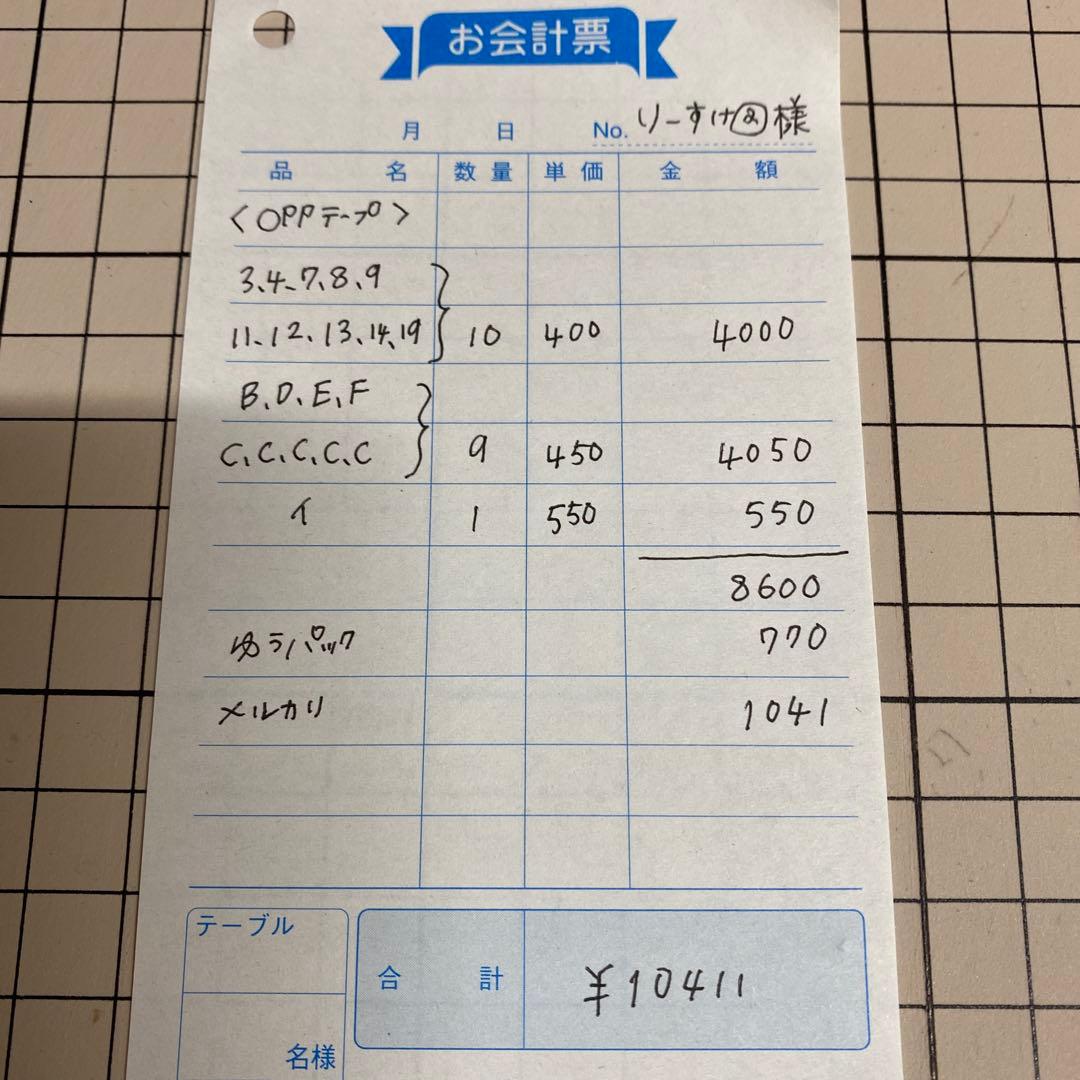 お会計票
月 日 No. りーすけ②様
品名 数量 単価 金額
〈OPPテープ〉
3、4、7、8、9
11、12、13、14、19 10 400 4000
B、D、E、F
C、C、C、C、C 9 450 4050
イ 1 550 550
8600
ゆうパック 770
メルカリ 1041
テーブル
合計 ¥10411
名様